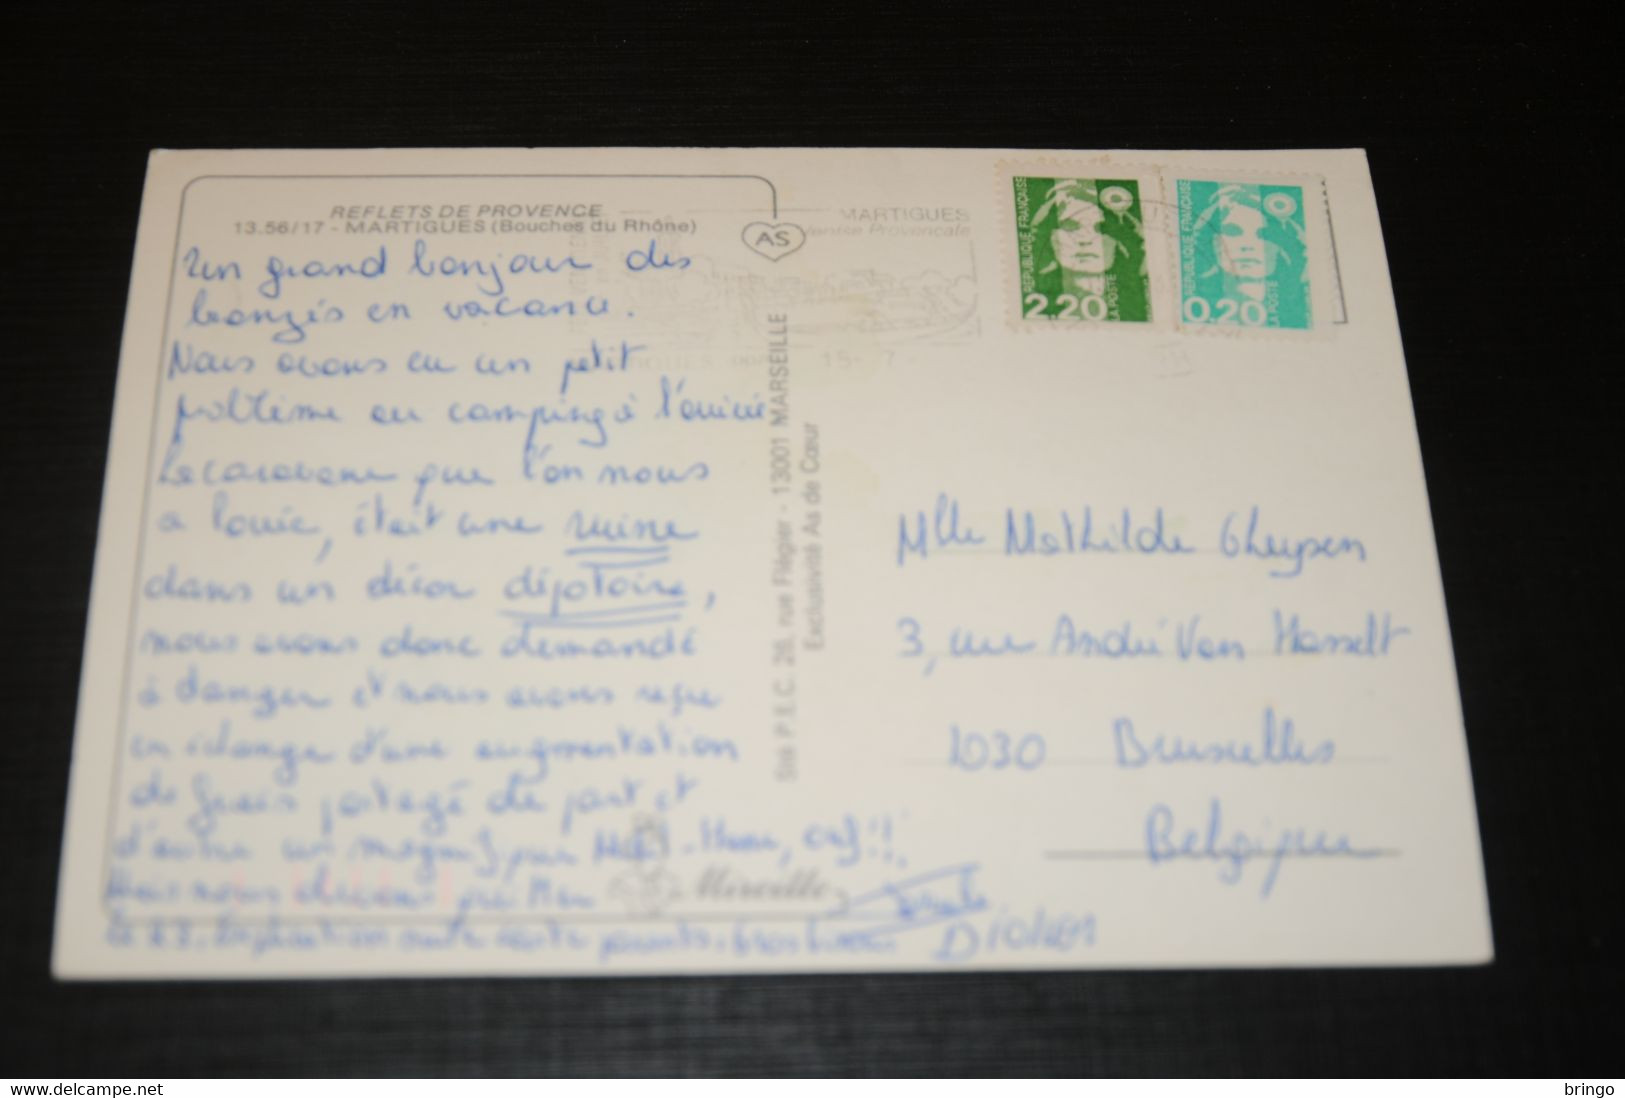 REFLETS DE PROVENCE
13.56/17 - MARTIGUES (Bouches du Rhône)
AS
MARTIGUES
Venise Provencale
15- 7
REPUBLIQUE FRANÇAISE
2,20
LA POSTE
REPUBLIQUE FRANÇAISE
0,20
LA POSTE
Un grand bonjour des
bronzés en vacance.
Nous avons eu un petit
problème au camping à l'arrivée
la caravane que l'on nous
a louée, était une ruine
dans un décor dépotoire,
nous avons donc demandé
à changer et nous avons reçu
en échange d'une augmentation
de frais partagé de part et
d'autre un
Mais nous
le
Sté P.E.C. 26, rue Flégier - 13001 MARSEILLE
Exclusivité As de Cœur
Mireille
Mlle Mathilde Gheysen
3, rue André Van Hasselt
1030 Bruxelles
Belgique
Didier
delcampe.net
bringo